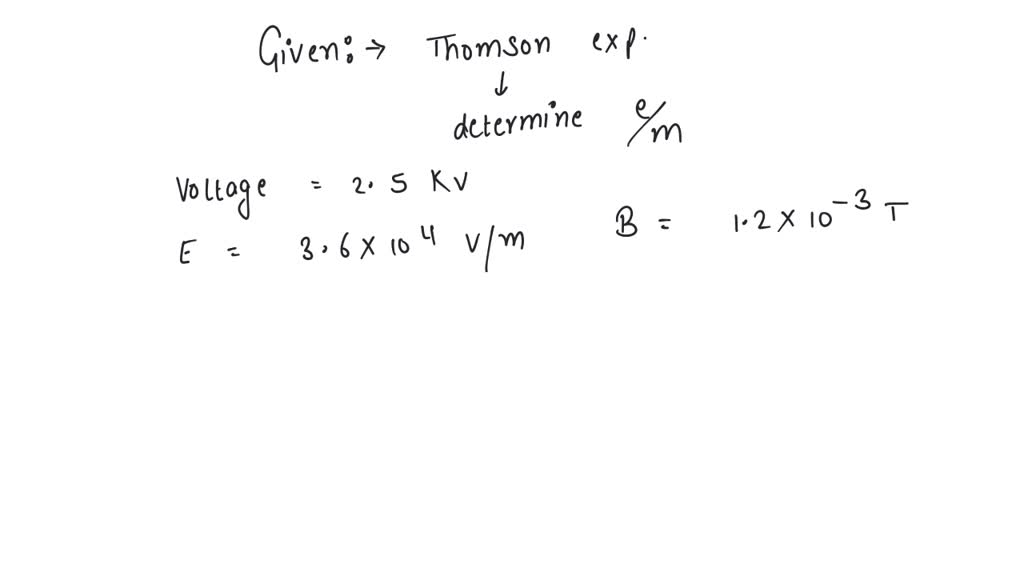 Given:→ Thomson exp.
↓
determine e/m
Voltage = 2.5 KV
E = 3.6 × 10⁴ V/m
B = 1.2 × 10⁻³ T